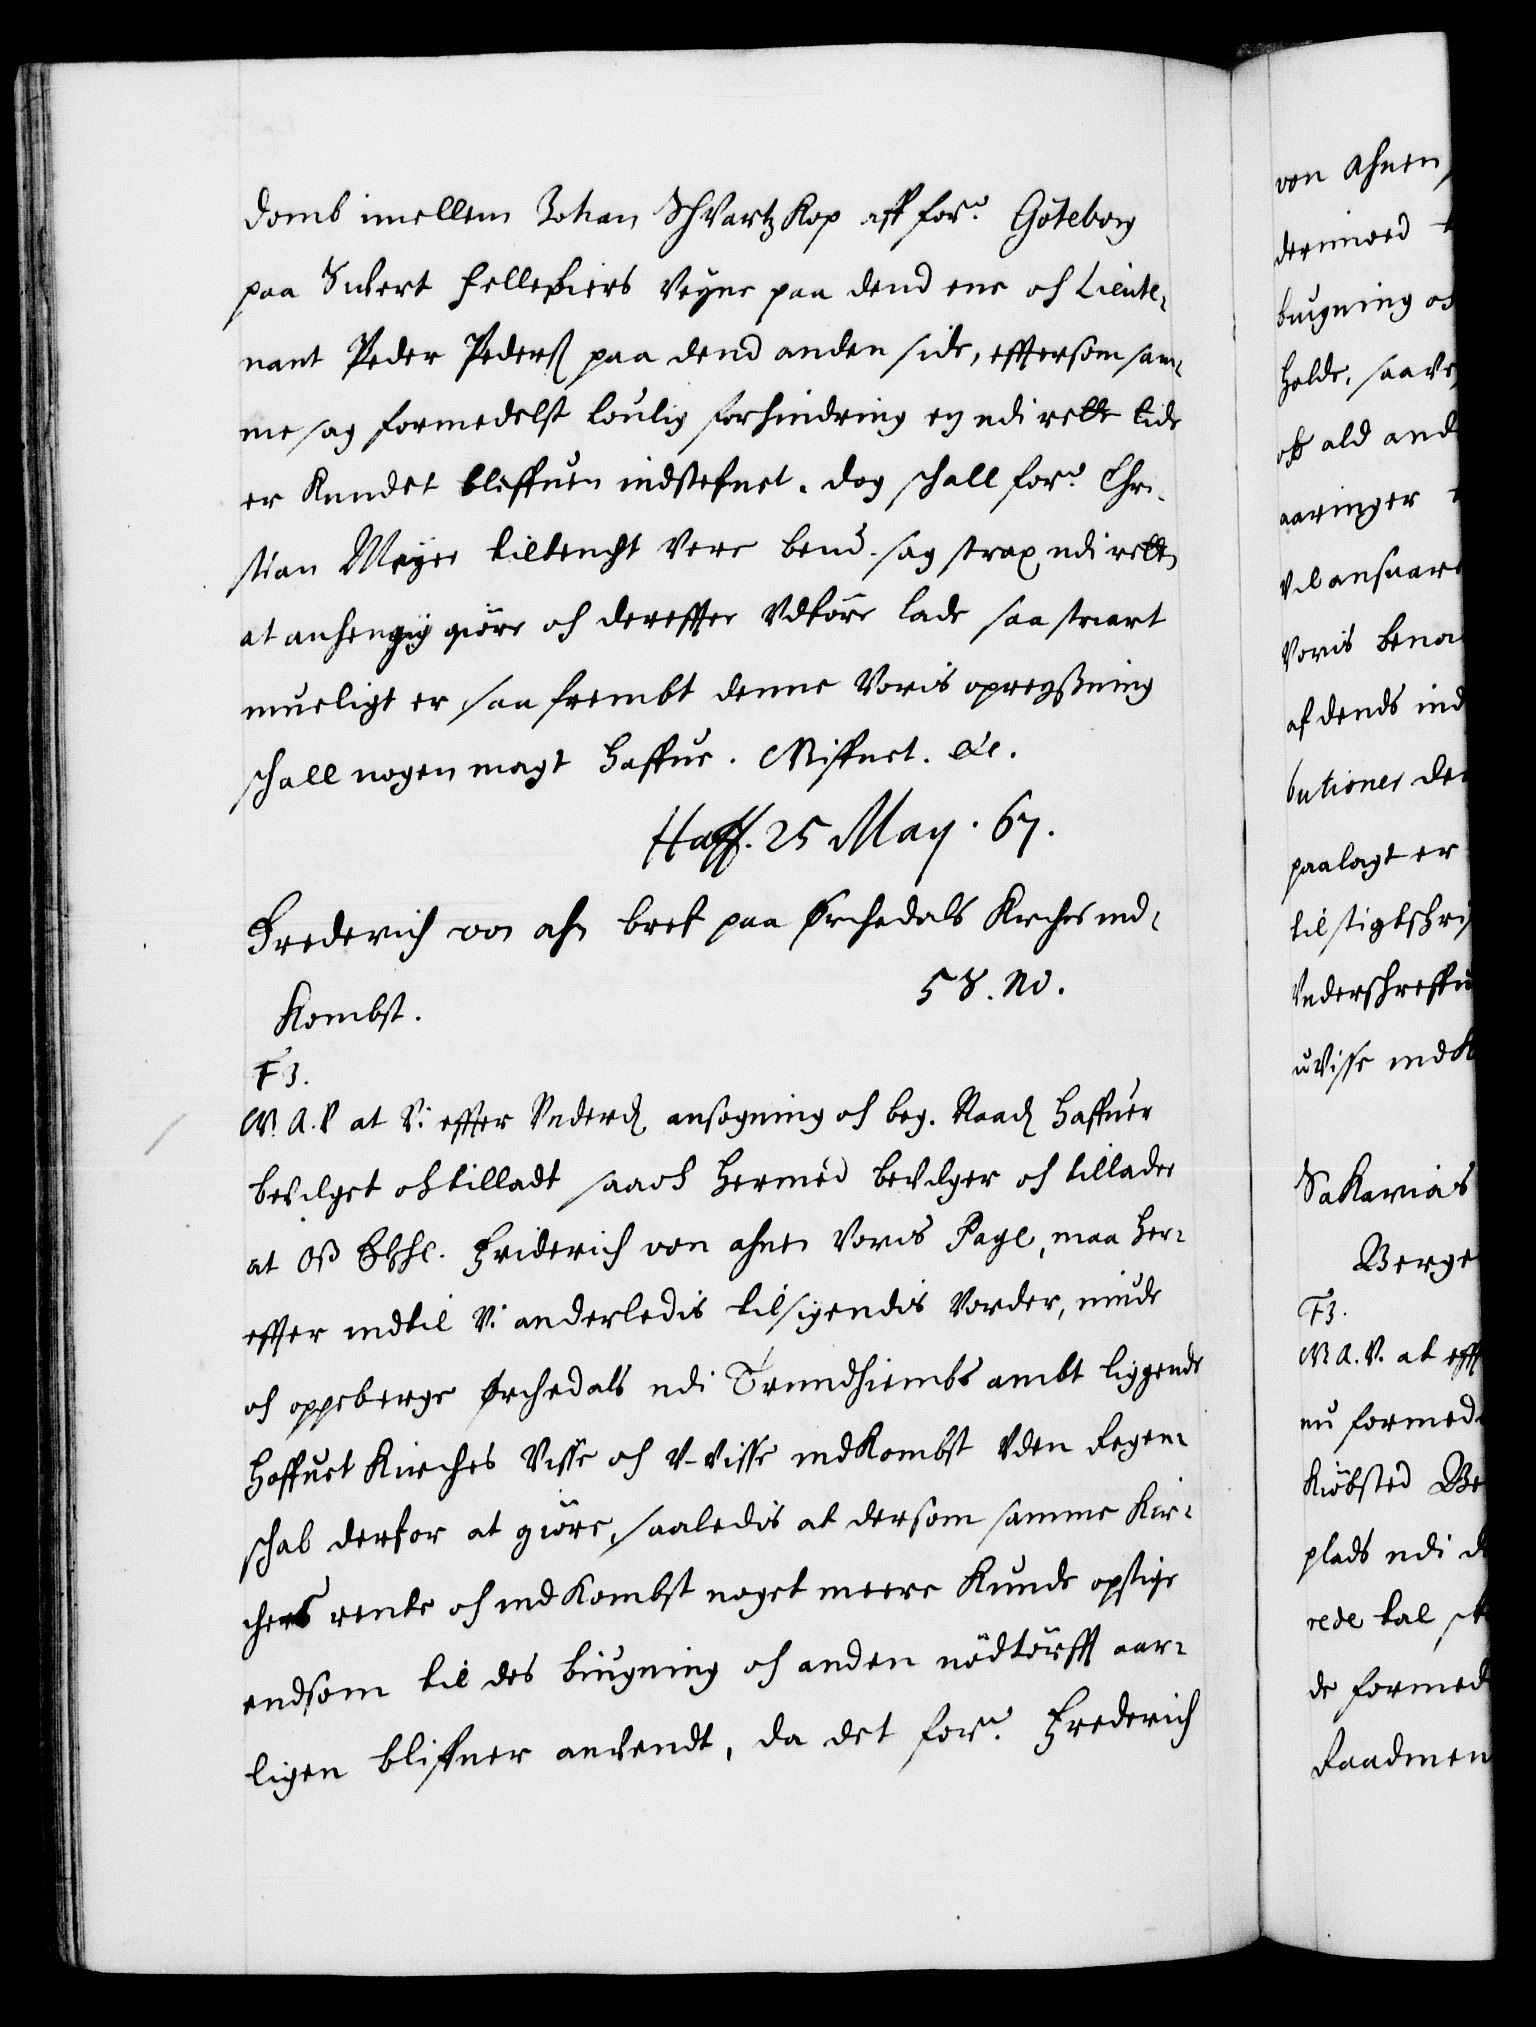 domb imellem Johan Schvartz Kop aff for.ͤ Göteborg
paa Sivert Felleþiers Vegne paa dend ene och Lieute-
nant Peder Pederß paa dend anden side, effersom sam-
me sag formedelst loulig forhindring ej udi rette tide
er Kundet bleffuen indstefnet. dog schall for.ͤ Chri-
stian Meyer tiltencht Vere bem.ͤ sag strax udi rette
at anhengig giöre och dereffter Udföre lade saa snart
mueligt er saa frembt denne Voris opreyßning
schall nogen magt haffue. Giffuet. &c.
Haff. 25 May. 67.
Frederich von ahn bref paa Ørchedals Kirches ind-
Kombst. 58. No.
F3.
G. A. V at Vi effter Underd. ansøgning och beg. Naad. haffuer
bevilget och tilladt saa och hermed bevilger och tillader
at Oß Elschl. Friderich von ahnen Voris Page, maa her-
effter indtil Vi anderledis tilsigendis Vorder, niude
och oppeberge Ørchedals udi Trundhiembs ambt liggende
Hoffuet Kirches Visse och U-visse indKombst Uden Regen-
schab derfor at giöre, saaledis at dersom samme Kir-
ches rente och indKombst noget meere Kunde opstige
endsom til des biugning och anden nödtörfft aar-
ligen bliffuer anvendt, da det for.ͤ Frederich
von Ahnen
dermed
bugning
holde, saave
och ald and
aaringer
Vil ansvare
Voris bena
af dends ind
butioner de
paalagt er
tilstigbschri
Underschreffu
uVisse indK
Sakarias
Berge
F3.
G. A. V. at efft
nu formed
Kiöbsted Be
plads udi d
rede tal
de formed
Raadmen